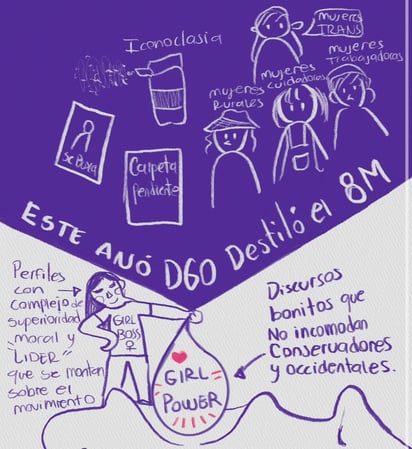 Iconoclasia
mujeres
TRANS
mujeres
Trabajadoras
mujeres
cuidadoras
mujeres
Rurales
Se Busca
Carpeta
Pendiente
ESTE AÑO DGO Destiló el 8M
Perfiles
con
complejo de
superioridad
moral y
"LIDER"
que se montan
sobre el
movimiento
GIRL
BOSS
GIRL
POWER
Discursos
bonitos que
No incomodan
Conservadores
y occidentales.